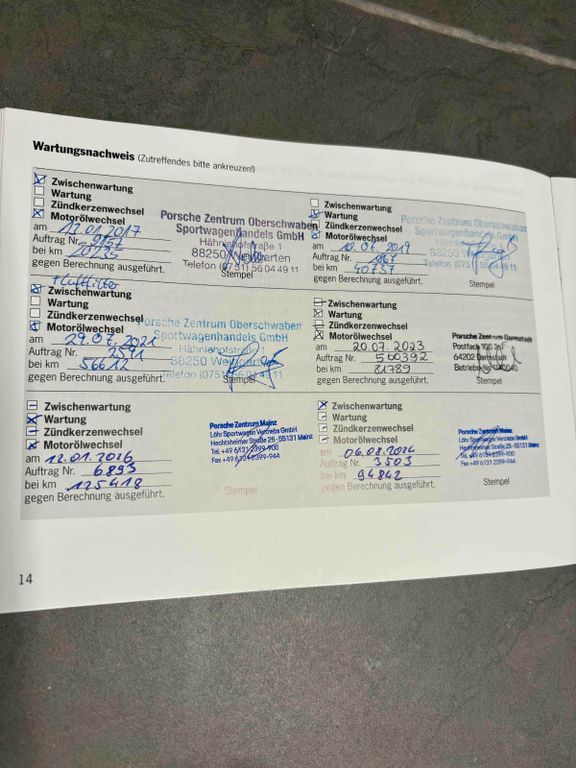 Wartungsnachweis (Zutreffendes bitte ankreuzen!)
Zwischenwartung
Wartung
Zündkerzenwechsel
Motorölwechsel
am 17.01.2017
Auftrag Nr. 9157
bei km 20235
gegen Berechnung ausgeführt.
Porsche Zentrum Oberschwaben
Sportwagenhandels GmbH
Hähnlehofstraße 1
88250 Weingarten
Telefon (0751) 56 04 49 11
Stempel
Zwischenwartung
Wartung
Zündkerzenwechsel
Motorölwechsel
am 18.06.2019
Auftrag Nr.
bei km 40757
gegen Berechnung ausgeführt.
Porsche Zentrum Oberschwaben
Sportwagenhandels GmbH
Hähnlehofstraße
88250
Telefon (0751) 56 04 49 11
Stempel
Zwischenwartung
Wartung
Zündkerzenwechsel
Motorölwechsel
am 29.07.2021
Auftrag Nr. 2591
bei km 56612
gegen Berechnung ausgeführt.
Porsche Zentrum Oberschwaben
Sportwagenhandels GmbH
88250 Weingarten
Telefon (0751) 56 04 49 11
Stempel
Zwischenwartung
Wartung
Zündkerzenwechsel
Motorölwechsel
am 20.07.2023
Auftrag Nr. 560392
bei km 81789
gegen Berechnung ausgeführt.
Porsche Zentrum Darmstadt
Postfach 100 201
64202 Darmstadt
Stempel
Zwischenwartung
Wartung
Zündkerzenwechsel
Motorölwechsel
am 12.01.2026
Auftrag Nr. 6893
bei km 125418
gegen Berechnung ausgeführt.
Porsche Zentrum Mainz
Löhr Sportwagen Vertriebs GmbH
Hechtsheimer Straße 25 - 55131 Mainz
Tel. +49 6131 2399-900
Fax +49 6131 2399-944
Stempel
Zwischenwartung
Wartung
Zündkerzenwechsel
Motorölwechsel
am 06.08.2024
Auftrag Nr. 3503
bei km 94842
gegen Berechnung ausgeführt.
Porsche Zentrum Mainz
Löhr Sportwagen Vertriebs GmbH
Hechtsheimer Straße 25 - 55131 Mainz
Tel. +49 6131 2399-900
Fax +49 6131 2399-944
Stempel
14